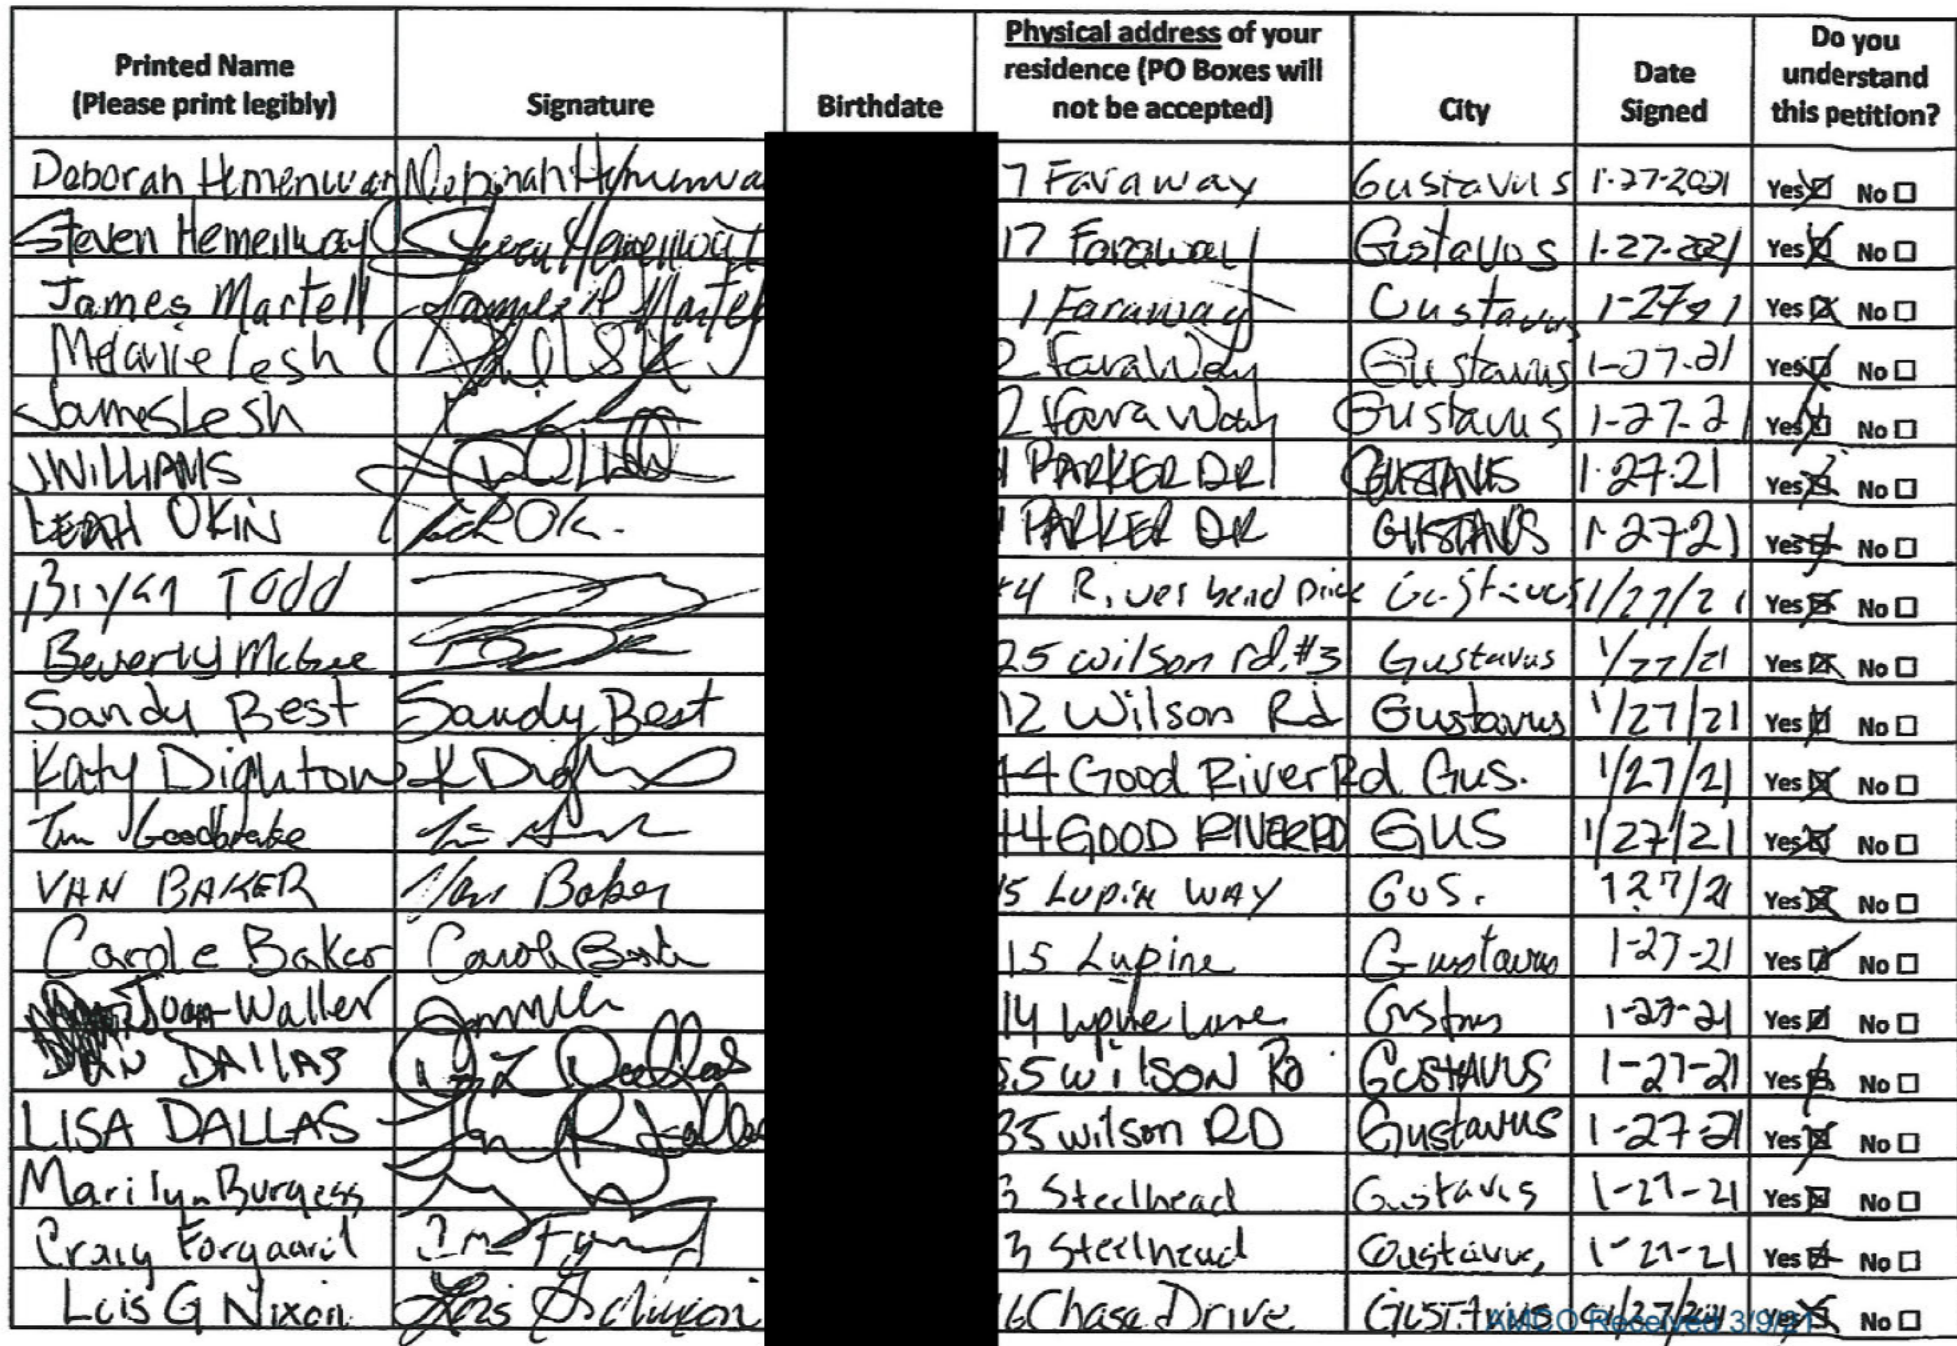 Printed Name (Please print legibly) Signature Birthdate Physical address of your residence (PO Boxes will not be accepted) City Date Signed Do you understand this petition?
Deborah Hemenway 7 Faraway Gustavus 1-27-2021 Yes No
Steven Hemenway Steven Hemenway 17 Faraway Gustavus 1-27-2021 Yes No
James Martell James Martell 1 Faraway Gustavus 1-27-21 Yes No
Melanie Lesh 2 FaraWay Gustavus 1-27-21 Yes No
James Lesh 2 Fara Way Gustavus 1-27-21 Yes No
J.WILLIAMS 1 PARKER DR GUSTAVUS 1-27-21 Yes No
LEAH OKIN 1 PARKER DR GUSTAVUS 1-27-21 Yes No
Bryan Todd 4 River bend Drive Gustavus 1/27/21 Yes No
Beverly McGee 25 wilson rd. #3 Gustavus 1/27/21 Yes No
Sandy Best Sandy Best 12 Wilson Rd Gustavus 1/27/21 Yes No
Katy Dighton 4 Good River Rd. Gus. 1/27/21 Yes No
Tim Goodbrake 4 GOOD RIVER RD GUS 1/27/21 Yes No
VAN BAKER Van Baker 15 LUPIN WAY GUS. 127/21 Yes No
Carole Baker 15 Lupine Gustavus 1-27-21 Yes No
Joan Waller 14 Lupine Lane Gustavus 1-27-21 Yes No
DAN DALLAS 5 WilSON RD GUSTAVUS 1-27-21 Yes No
LISA DALLAS 35 wilson RD Gustavus 1-27-21 Yes No
Marilyn Burgess 3 Steelhead Gustavus 1-27-21 Yes No
Craig Forgaard 3 Steelhead Gustavus, 1-27-21 Yes No
Lois G Nixon Lois G Nixon 6 Chase Drive GUSTAVUS 01/27/2021 Yes No
AMCO Received 3/9/21